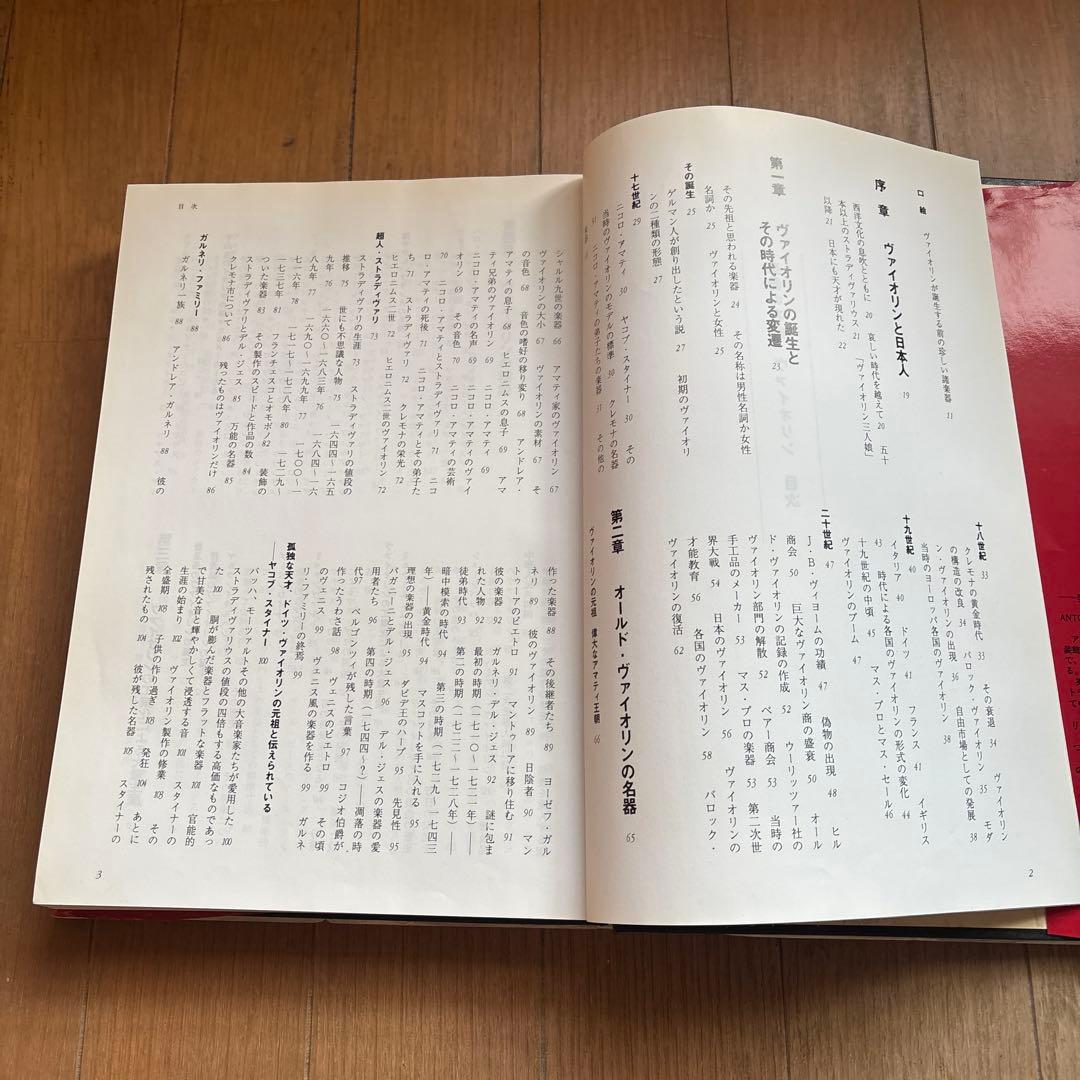 口絵
ヴァイオリンが誕生する前の珍しい諸楽器 11
序章 ヴァイオリンと日本人 19
西洋文化の息吹とともに 20 哀しい時代を越えて 20 五十
本以上のストラディヴァリウス 21 「ヴァイオリン三人娘」
以降 21 日本にも天才が現れた 22
第一章 ヴァイオリンの誕生と
その時代による変遷 23
その先祖と思われる楽器 24 その名称は男性名詞か女性
名詞か 25 ヴァイオリンと女性 25
その誕生 25
ゲルマン人が創り出したという説 27 初期のヴァイオリ
ンの二種類の形態 27
十七世紀 29
ニコロ・アマティ 30 ヤコブ・スタイナー 30 その
当時のヴァイオリンのモデルの標準 30 クレモナの名器
31 ニコロ・アマティの弟子たちの楽器 31 その他の
十八世紀 33
クレモナの黄金時代 33 その衰退 34 ヴァイオリン
の構造の改良 34 バロック・ヴァイオリン 35 モダ
ン・ヴァイオリンの出現 36 自由市場としての発展 38
当時のヨーロッパ各国のヴァイオリン 38
十九世紀 40
イタリア 40 ドイツ 41 フランス 41 イギリス
43 時代による各国のヴァイオリンの形式の変化 44
十九世紀の中頃 45 マス・プロとマス・セール 46
ヴァイオリンのブーム 47
二十世紀 47
J・B・ヴィヨームの功績 47 偽物の出現 48 ヒル
商会 50 巨大なヴァイオリン商の盛衰 50 オール
ド・ヴァイオリンの記録の作成 52 ウーリッツァー社の
ヴァイオリン部門の解散 52 ベアー商会 53 当時の
手工品のメーカー 53 マス・プロの楽器 53 第二次世
界大戦 54 日本のヴァイオリン 56 ヴァイオリンの
才能教育 56 各国のヴァイオリン 58 バロック・
ヴァイオリンの復活 62
第二章 オールド・ヴァイオリンの名器 65
ヴァイオリンの元祖 偉大なアマティ王朝 66
2
目次
シャルル九世の楽器 66 アマティ家のヴァイオリン 67
ヴァイオリンの大小 67 ヴァイオリンの素材 67 そ
の音色 68 音色の嗜好の移り変り 68 アンドレア・
アマティの息子 68 ヒエロニムスの息子 69 アマ
ティ兄弟のヴァイオリン 69 ニコロ・アマティ 69
ニコロ・アマティの名声 69 ニコロ・アマティのヴァイ
オリン 69 その音色 70 ニコロ・アマティの芸術
70 ニコロ・アマティとストラディヴァリ 71 ニコ
ロ・アマティの死後 71 ニコロ・アマティとその弟子た
ち 71 ストラディヴァリ 72 クレモナの栄光 72
ヒエロニムス二世 72 ヒエロニムス二世のヴァイオリン 72
超人・ストラディヴァリ 73
ストラディヴァリの生涯 73 ストラディヴァリの値段の
推移 75 世にも不思議な人物 75 一六四四〜一六五
九年 76 一六六〇〜一六八三年 76 一六八四〜一六
八九年 77 一六九〇〜一六九九年 77 一七〇〇〜一
七一六年 78 一七一七〜一七二八年 80 一七二九〜
一七三七年 81 フランチェスコとオモボノ 82 装飾の
ついた楽器 83 その製作のスピードと作品の数 84
ストラディヴァリとデル・ジェス 85 万能の名器 85
クレモナ市について 86 残ったものはヴァイオリンだけ 86
ガルネリ・ファミリー 88
ガルネリ一族 88 アンドレア・ガルネリ 88 彼の
作った楽器 88 その後継者たち 89 ヨーゼフ・ガル
ネリ 89 彼のヴァイオリン 89 日陰者 90 マン
トゥーアのピエトロ 91 マントゥーアに移り住む 91
彼の楽器 92 ガルネリ・デル・ジェス 92 謎に包ま
れた人物 92 最初の時期(一七一〇〜一七二一年)——
徒弟時代 93 第二の時期(一七二二〜一七二八年)——
暗中模索の時代 94 第三の時期(一七二九〜一七四三
年)——黄金時代 94 マスコットを手に入れる 95
理想の楽器の出現 95 ダビデ王のハープ 95 先見性 95
パガニーニとデル・ジェス 96 デル・ジェスの楽器の愛
用者たち 96 第四の時期(一七四四〜?)——凋落の時
代 97 ベルゴンツィが残した言葉 97 コジオ伯爵が
作ったうわさ話 98 ヴェニスのピエトロ 99 その頃
のヴェニス 99 ヴェニス風の楽器を作る 99 ガルネ
リ・ファミリーの終焉 99
孤独な天才、ドイツ・ヴァイオリンの元祖と伝えられている
——ヤコブ・スタイナー 100
バッハ・モーツァルトその他の大音楽家たちが愛用した 100
ストラディヴァリウスの値段の四倍もする高価なものであっ
た 100 胴が膨んだ楽器とフラットな楽器 101 官能的
で甘美な音と輝やかしくて浸透する音 101 スタイナーの
生涯の始まり 102 ヴァイオリン製作の修業 103 その
全盛期 103 子供の作り過ぎ 103 発狂 104 あとに
残されたもの 104 彼が残した名器 105 スタイナーの
3
ANTO